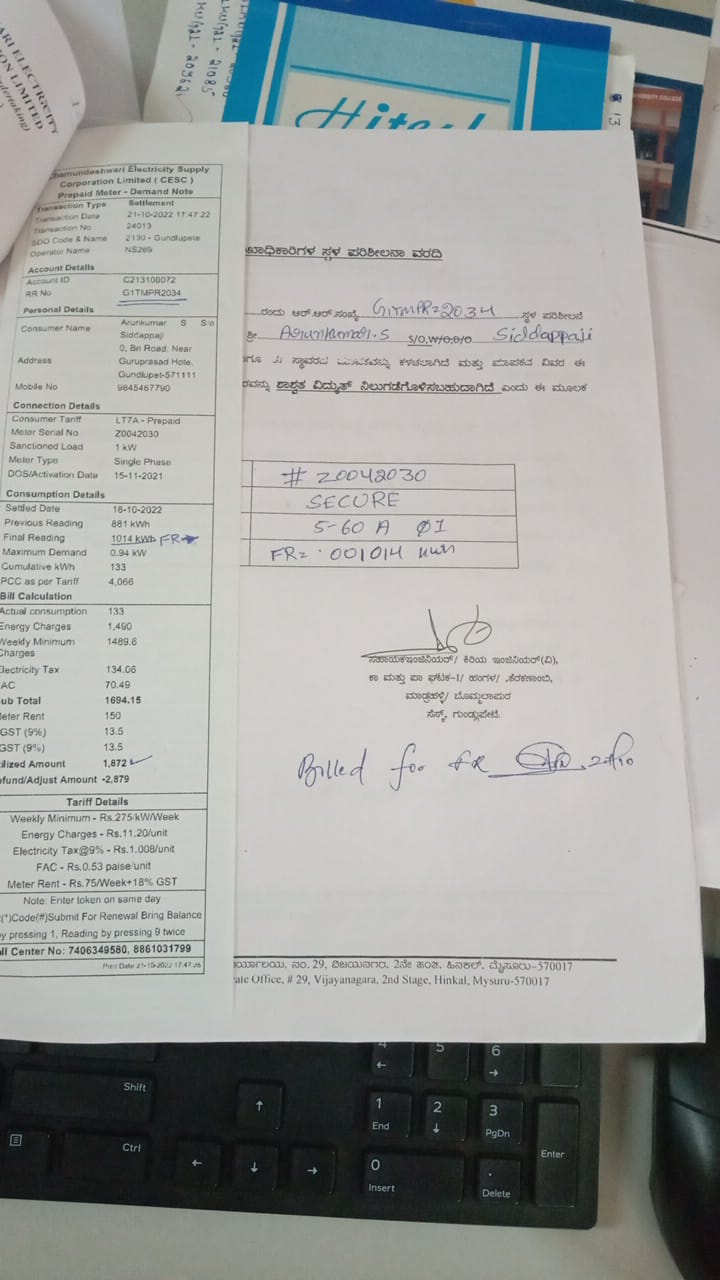 ARI ELECTRICITY
ON LIMITED
Hitech
Chamundeshwari Electricity Supply
Corporation Limited ( CESC )
Prepaid Meter - Demand Note
Transaction Type Settlement
Transaction Date 21-10-2022 17:47:22
Transaction No 24013
SDO Code & Name 2130 - Gundlupete
Operator Name NS269
Account Details
Account ID C213100072
RR No G1TMPR2034
Personal Details
Consumer Name Arunkumar S S/o
Siddappaji
Address 0, Bn Road, Near
Guruprasad Hote,
Gundlupet-571111
Mobile No 9845467790
Connection Details
Consumer Tariff LT7A - Prepaid
Meter Serial No Z0042030
Sanctioned Load 1 kW
Meter Type Single Phase
DOS/Activation Date 15-11-2021
Consumption Details
Settled Date 18-10-2022
Previous Reading 881 kWh
Final Reading 1014 kWh FR
Maximum Demand 0.94 kW
Cumulative kWh 133
PCC as per Tariff 4,066
Bill Calculation
Actual consumption 133
Energy Charges 1,490
Weekly Minimum 1489.6
Charges
Electricity Tax 134.06
AC 70.49
ub Total 1694.15
eter Rent 150
GST (9%) 13.5
GST (9%) 13.5
ilized Amount 1,872
efund/Adjust Amount -2,879
Tariff Details
Weekly Minimum - Rs.275/kW/Week
Energy Charges - Rs.11.20/unit
Electricity Tax@9% - Rs.1.008/unit
FAC - Rs.0.53 paise/unit
Meter Rent - Rs.75/Week+18% GST
Note: Enter token on same day
(*)Code(#)Submit For Renewal Bring Balance
y pressing 1, Reading by pressing 9 twice
ll Center No: 7406349580, 8861031799
Print Date 21-10-2022 17:47:26
ಖಾಧಿಕಾರಿಗಳ ಸ್ಥಳ ಪರಿಶೀಲನಾ ವರದಿ
ರಂದು ಆರ್.ಆರ್.ಸಂಖ್ಯೆ G1TMPR=2034 ಸ್ಥಳ ಪರಿಶೀಲನೆ
ಶ್ರೀ Arunkumar.S S/O,W/O,D/O Siddappaji
ಹಾಗೂ ಸದರಿ ಸ್ಥಾವರದ ಮಾಪಕವನ್ನು ಕಳಚಲಾಗಿದೆ ಮತ್ತು ಮಾಪಕದ ವಿವರ ಈ
ರವನ್ನು ಶಾಶ್ವತ ವಿದ್ಯುತ್ ನಿಲುಗಡೆಗೊಳಿಸಬಹುದಾಗಿದೆ ಎಂದು ಈ ಮೂಲಕ
# Z0042030
SECURE
5-60 A Ø1
FR= .001014 kwh
ಸಹಾಯಕಇಂಜಿನಿಯರ್/ ಕಿರಿಯ ಇಂಜಿನಿಯರ್(ವಿ),
ಕಾ ಮತ್ತು ಪಾ ಘಟಕ-1/ ಹಂಗಳ/ ,ತೆರಕಣಾಂಬಿ,
ಮಾಡ್ರಹಳ್ಳಿ/ ಬೊಮ್ಮಲಾಪುರ
ಸೆಸ್ಕ್, ಗುಂಡ್ಲುಪೇಟೆ.
Billed for FR
ಕಾರ್ಯಾಲಯ, ನಂ. 29, ವಿಜಯನಗರ, 2ನೇ ಹಂತ, ಹಿನಕಲ್, ಮೈಸೂರು-570017
ate Office, # 29, Vijayanagara, 2nd Stage, Hinkal, Mysuru-570017
4 5 6
Shift
1 End 2 3 PgDn
Ctrl
Enter
0 Insert . Delete